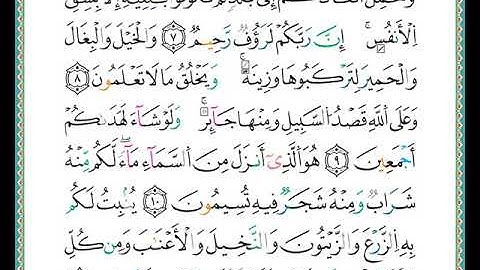 وَتَحْمِلُ أَثْقَالَكُمْ إِلَىٰ بَلَدٍ لَّمْ تَكُونُوا۟ بَٰلِغِيهِ إِلَّا بِشِقِّ
ٱلْأَنفُسِ ۚ إِنَّ رَبَّكُمْ لَرَءُوفٌ رَّحِيمٌ ٧ وَٱلْخَيْلَ وَٱلْبِغَالَ
وَٱلْحَمِيرَ لِتَرْكَبُوهَا وَزِينَةً ۚ وَيَخْلُقُ مَا لَا تَعْلَمُونَ ٨
وَعَلَى ٱللَّهِ قَصْدُ ٱلسَّبِيلِ وَمِنْهَا جَآئِرٌ ۚ وَلَوْ شَآءَ لَهَدَىٰكُمْ
أَجْمَعِينَ ٩ هُوَ ٱلَّذِىٓ أَنزَلَ مِنَ ٱلسَّمَآءِ مَآءً ۖ لَّكُم مِّنْهُ
شَرَابٌ وَمِنْهُ شَجَرٌ فِيهِ تُسِيمُونَ ١٠ يُنۢبِتُ لَكُم
بِهِ ٱلزَّرْعَ وَٱلزَّيْتُونَ وَٱلنَّخِيلَ وَٱلْأَعْنَٰبَ وَمِن كُلِّ